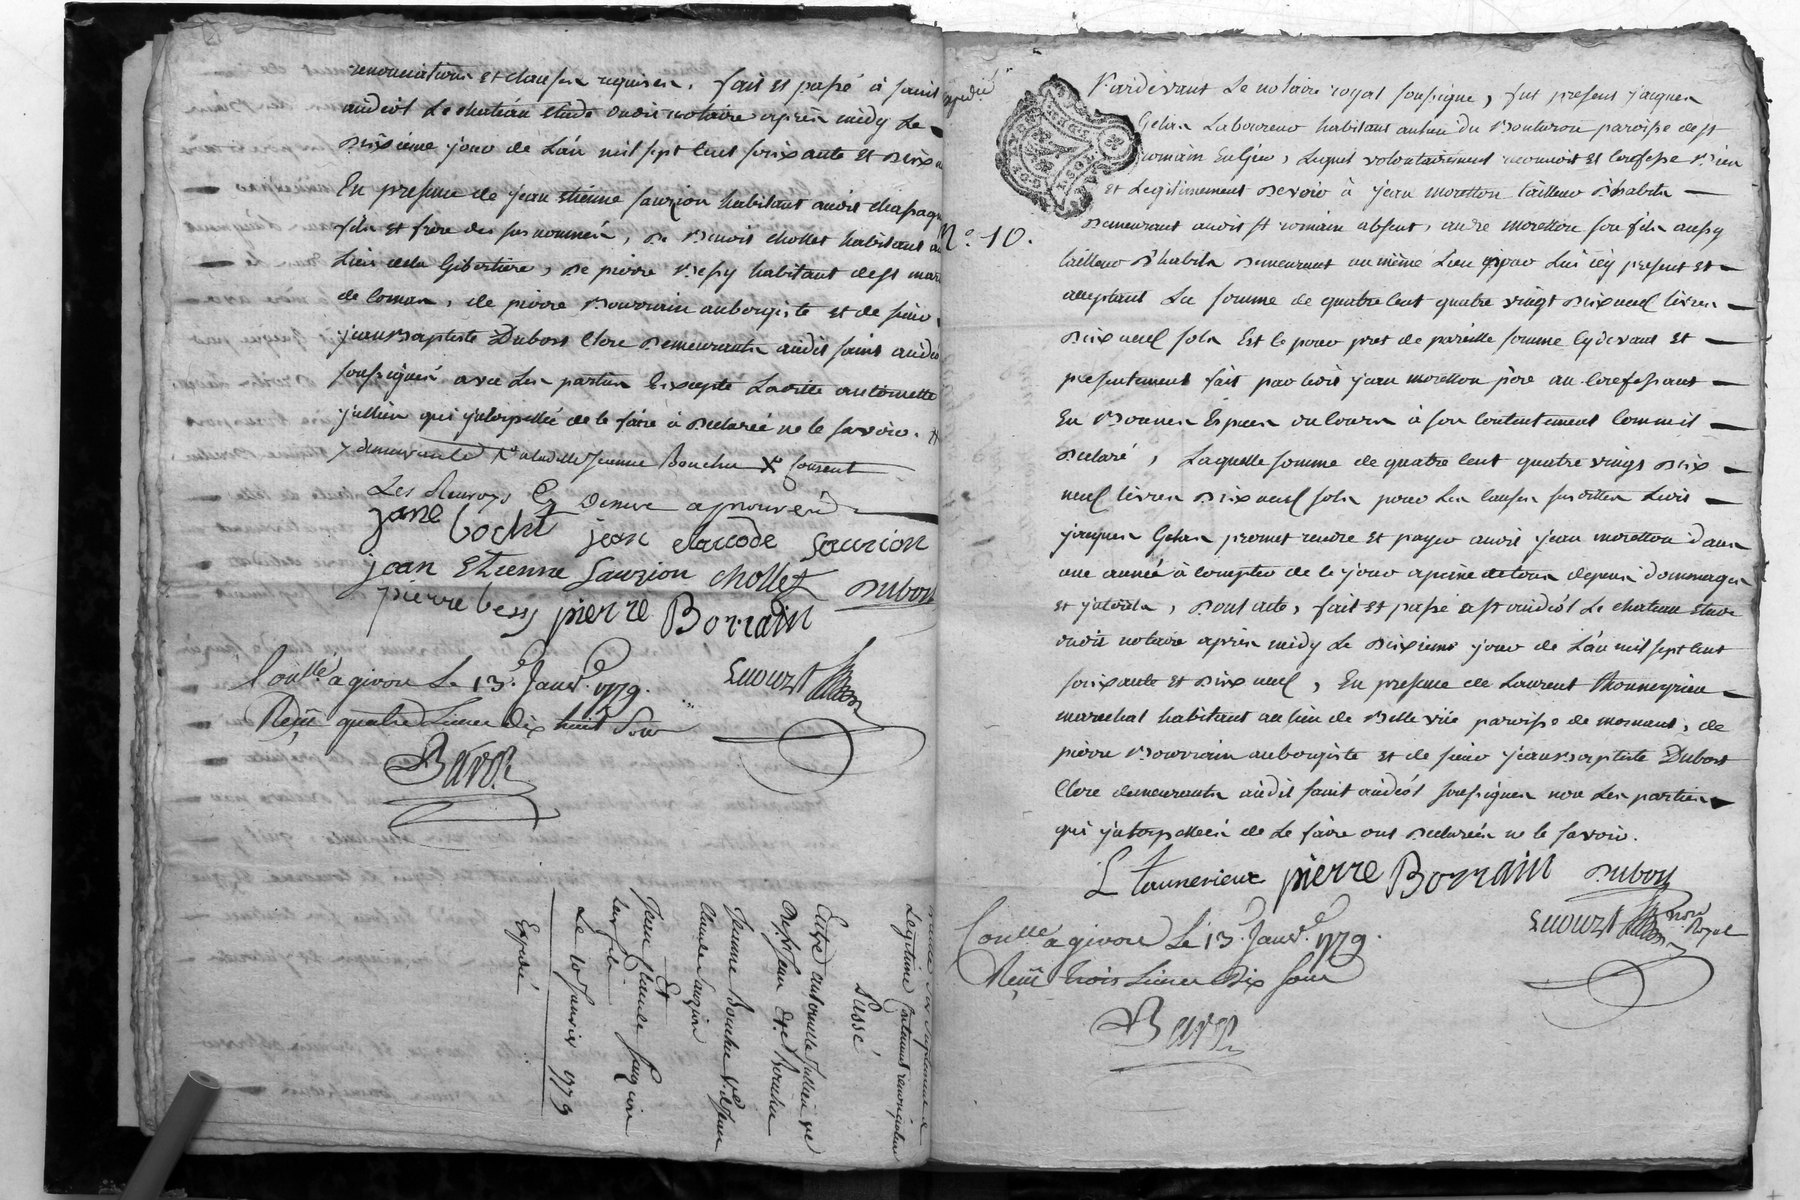 renonciations et clauses requises. fait et passé à saint
andéol le chateau etude dudit notaire apres midy le
dixieme jour de l'an mil sept cent soixante et dix n
En presence de jean etienne sauzion habitant audit chassagn
fils et frere des susnommés, de Benoit chollet habitant au
Lieu de la Gibertiere, de pierre Bessy habitant de st mar
de cornas, de pierre Bourrain aubergiste et de sieur
jean Baptiste Dubost clerc demeurants audit saint andeo
soussignés avec les parties Excepté Laditte antoinette
jullien qui jnterpellée de le faire à declarée ne le savoir.
demeurante Jeanne Bouchu consent
approuvé
jane bocht jean claude sauzion
jean Etienne Sauzion chollet Dubost
pierre bessy pierre Borrain
Coullé a givors Le 13e. Janvr. 1779.
Reçu quatre Livres dix huit Sous
Barou
Legitime Contenant renonciation
Passé
Entre antoinette Jullien ve
de Sr. Jean Bouchu
Jeanne Bouchu ve de Jean
Claude Sauzion
Et
Jean Claude Sauzion
Le 10 Janvier 1779
Expedié
Expedié
N°. 10.
Pardevant Le notaire royal soussigné, fut present jacques
Gelas Laboureur habitant au lieu du Bouteron paroisse de st
romain En Gier, Lequel volontairement reconnoit et confesse Bien
et Legitimement devoir à jean moretton tailleur d'habits
demeurant audit st romain absent, andré moretton son fils aussy
tailleur d'habits demeurant au même Lieu pour Lui icy present et
acceptant La somme de quatre cent quatre vingt dix neuf livres
dix neuf sols Est ce pour pret de pareille somme cy devant et
presentement fait par ledit jean moretton pere au confessant
En Bonnes Especes du cours à son contentement comme il
declaré, Laquelle somme de quatre cent quatre vingt dix
neuf livres dix neuf sols pour les causes susdittes Ledit
jacques Gelas promet rendre et payer audit jean moretton dans
une année à compter de ce jour a peine de tous depens dommages
et jnterets, Dont acte, fait et passé a st andéol le chateau Etude
dudit notaire après midy le dixieme jour de l'an mil sept cent
soixante et dix neuf, En presence de Laurent thonnerieu
marechal habitant au lieu de Belle vüe paroisse de mornant, de
pierre Bourrain aubergiste et de sieur jean Baptiste Dubost
Clerc demeurants audit saint andéol soussignés non Les parties
qui jnterpellées de Le faire ont declarées ne le savoir.
L tonnerieux pierre Borrain Dubost
nore Royal
Coullé a givors Le 13e. Janvr. 1779.
Reçu trois Livres Dix sous
Barou